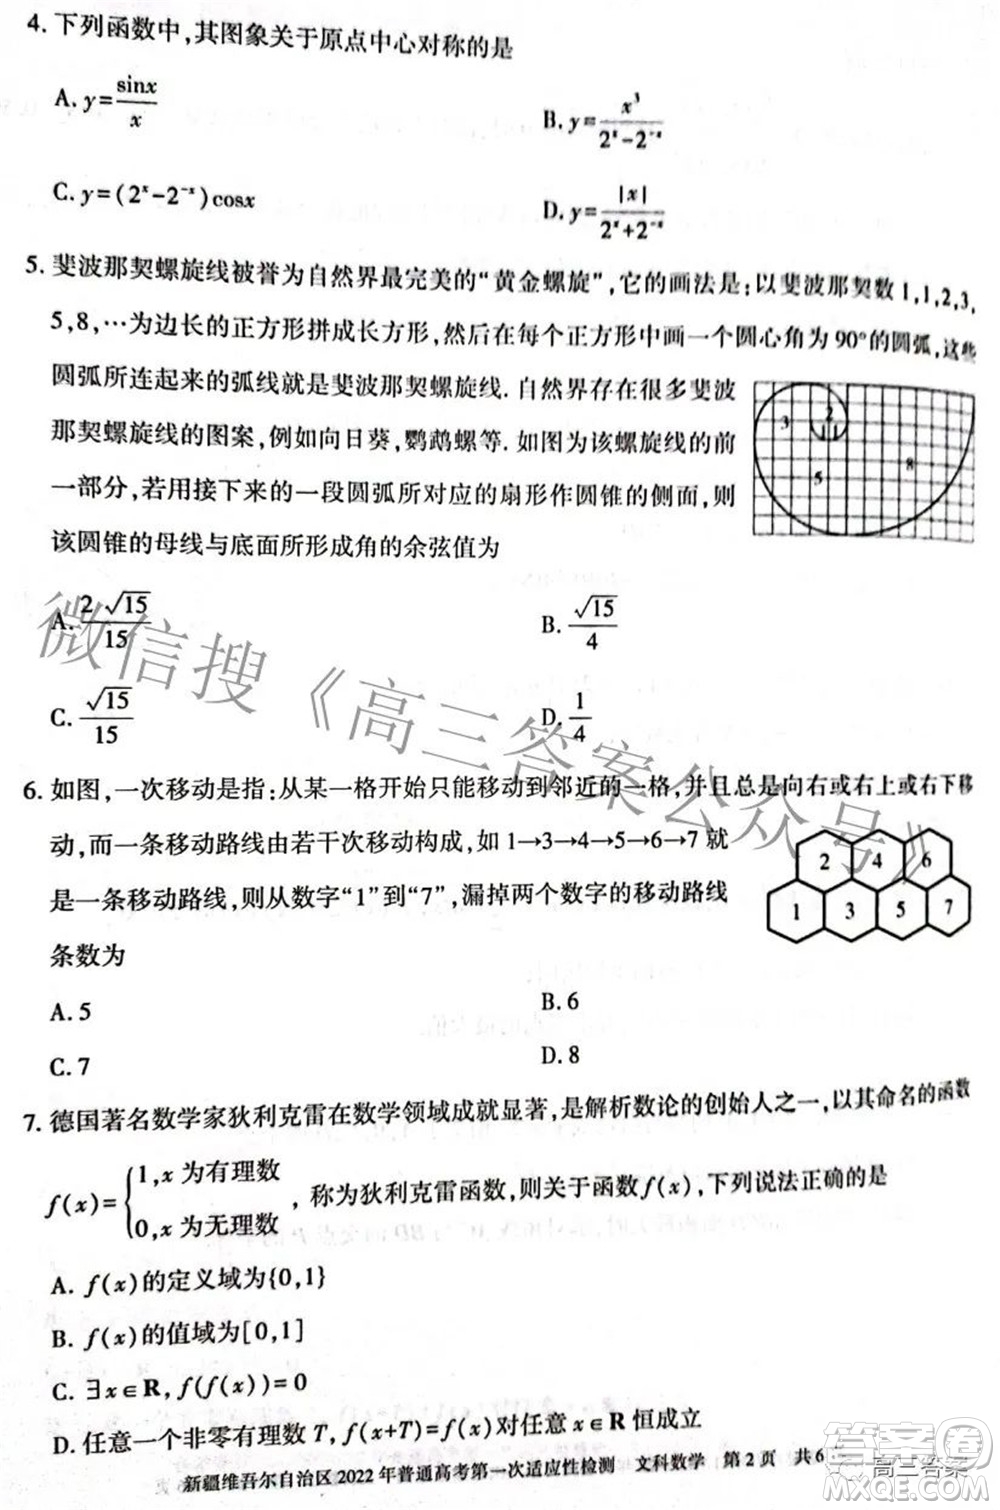 4. 下列函数中,其图象关于原点中心对称的是
A. y=sinx/x
B. y=x³/(2ˣ-2⁻ˣ)
C. y=(2ˣ-2⁻ˣ)cosx
D. y=|x|/(2ˣ+2⁻ˣ)
5. 斐波那契螺旋线被誉为自然界最完美的“黄金螺旋”,它的画法是:以斐波那契数1,1,2,3,
5,8,…为边长的正方形拼成长方形,然后在每个正方形中画一个圆心角为90°的圆弧,这些
圆弧所连起来的弧线就是斐波那契螺旋线.自然界存在很多斐波
那契螺旋线的图案,例如向日葵,鹦鹉螺等.如图为该螺旋线的前
一部分,若用接下来的一段圆弧所对应的扇形作圆锥的侧面,则
该圆锥的母线与底面所形成角的余弦值为
3 2
5 8
A. 2√15/15
B. √15/4
C. √15/15
D. 1/4
6. 如图,一次移动是指:从某一格开始只能移动到邻近的一格,并且总是向右或右上或右下移
动,而一条移动路线由若干次移动构成,如1→3→4→5→6→7就
是一条移动路线,则从数字“1”到“7”,漏掉两个数字的移动路线
条数为
2 4 6
1 3 5 7
A. 5
B. 6
C. 7
D. 8
7. 德国著名数学家狄利克雷在数学领域成就显著,是解析数论的创始人之一,以其命名的函数
f(x)={1,x为有理数
0,x为无理数
,称为狄利克雷函数,则关于函数f(x),下列说法正确的是
A. f(x)的定义域为{0,1}
B. f(x)的值域为[0,1]
C. ∃x∈R,f(f(x))=0
D. 任意一个非零有理数T,f(x+T)=f(x)对任意x∈R恒成立
新疆维吾尔自治区2022年普通高考第一次适应性检测 文科数学 第2页 共6
微信搜《高三答案公众号》
答案圈
MXQE.COM
高三答案